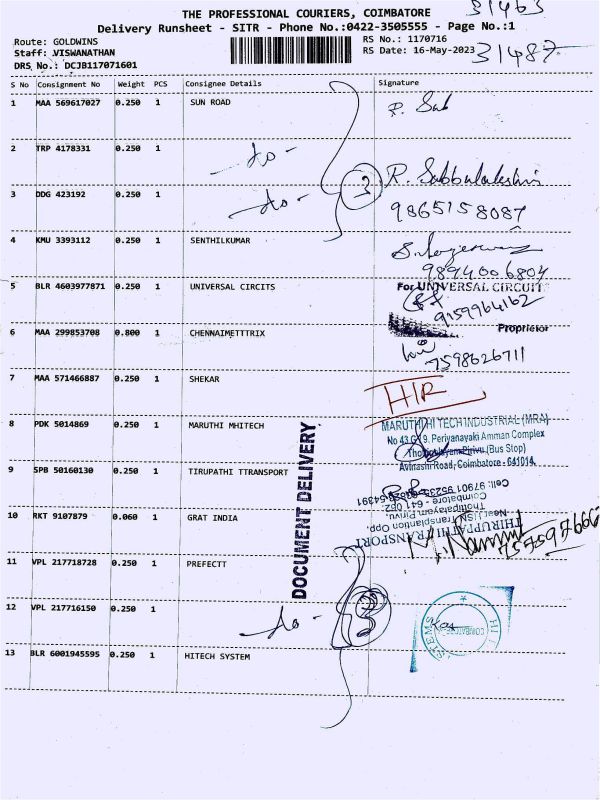 THE PROFESSIONAL COURIERS, COIMBATORE
31463
Delivery Runsheet - SITR - Phone No.:0422-3505555 - Page No.:1
Route: GOLDWINS
RS No.: 1170716
Staff: VISWANATHAN
RS Date: 16-May-2023
31487
DRS No.: DCJB117071601
S No Consignment No Weight PCS Consignee Details Signature
1 MAA 569617027 0.250 1 SUN ROAD
2 TRP 4178331 0.250 1 -do-
3 R. Subbulakshmi
3 DDG 423192 0.250 1 -do-
9865158087
4 KMU 3393112 0.250 1 SENTHILKUMAR
9894006804
5 BLR 4603977871 0.250 1 UNIVERSAL CIRCITS
For UNIVERSAL CIRCUIT
9159964162
Proprietor
6 MAA 299853708 0.800 1 CHENNAIMETTTRIX
7598626711
7 MAA 571466887 0.250 1 SHEKAR
8 PDK 5014869 0.250 1 MARUTHI MHITECH
MARUTHI HI TECH INDUSTRIAL (MRA)
No 43, G 19, Periyanayaki Amman Complex
Thottipalayam Pirivu (Bus Stop)
Avinashi Road, Coimbatore - 641014.
DOCUMENT DELIVERY
9 SPB 50160130 0.250 1 TIRUPATHI TTRANSPORT
THIRUPPATHI TRANSPORT
Thottipalayam Pirivu,
Coimbatore - 641 062.
10 RKT 9107879 0.060 1 GRAT INDIA
11 VPL 217718728 0.250 1 PREFECTT
12 VPL 217716150 0.250 1 -do-
3
13 BLR 6001945595 0.250 1 HITECH SYSTEM
COIMBATORE